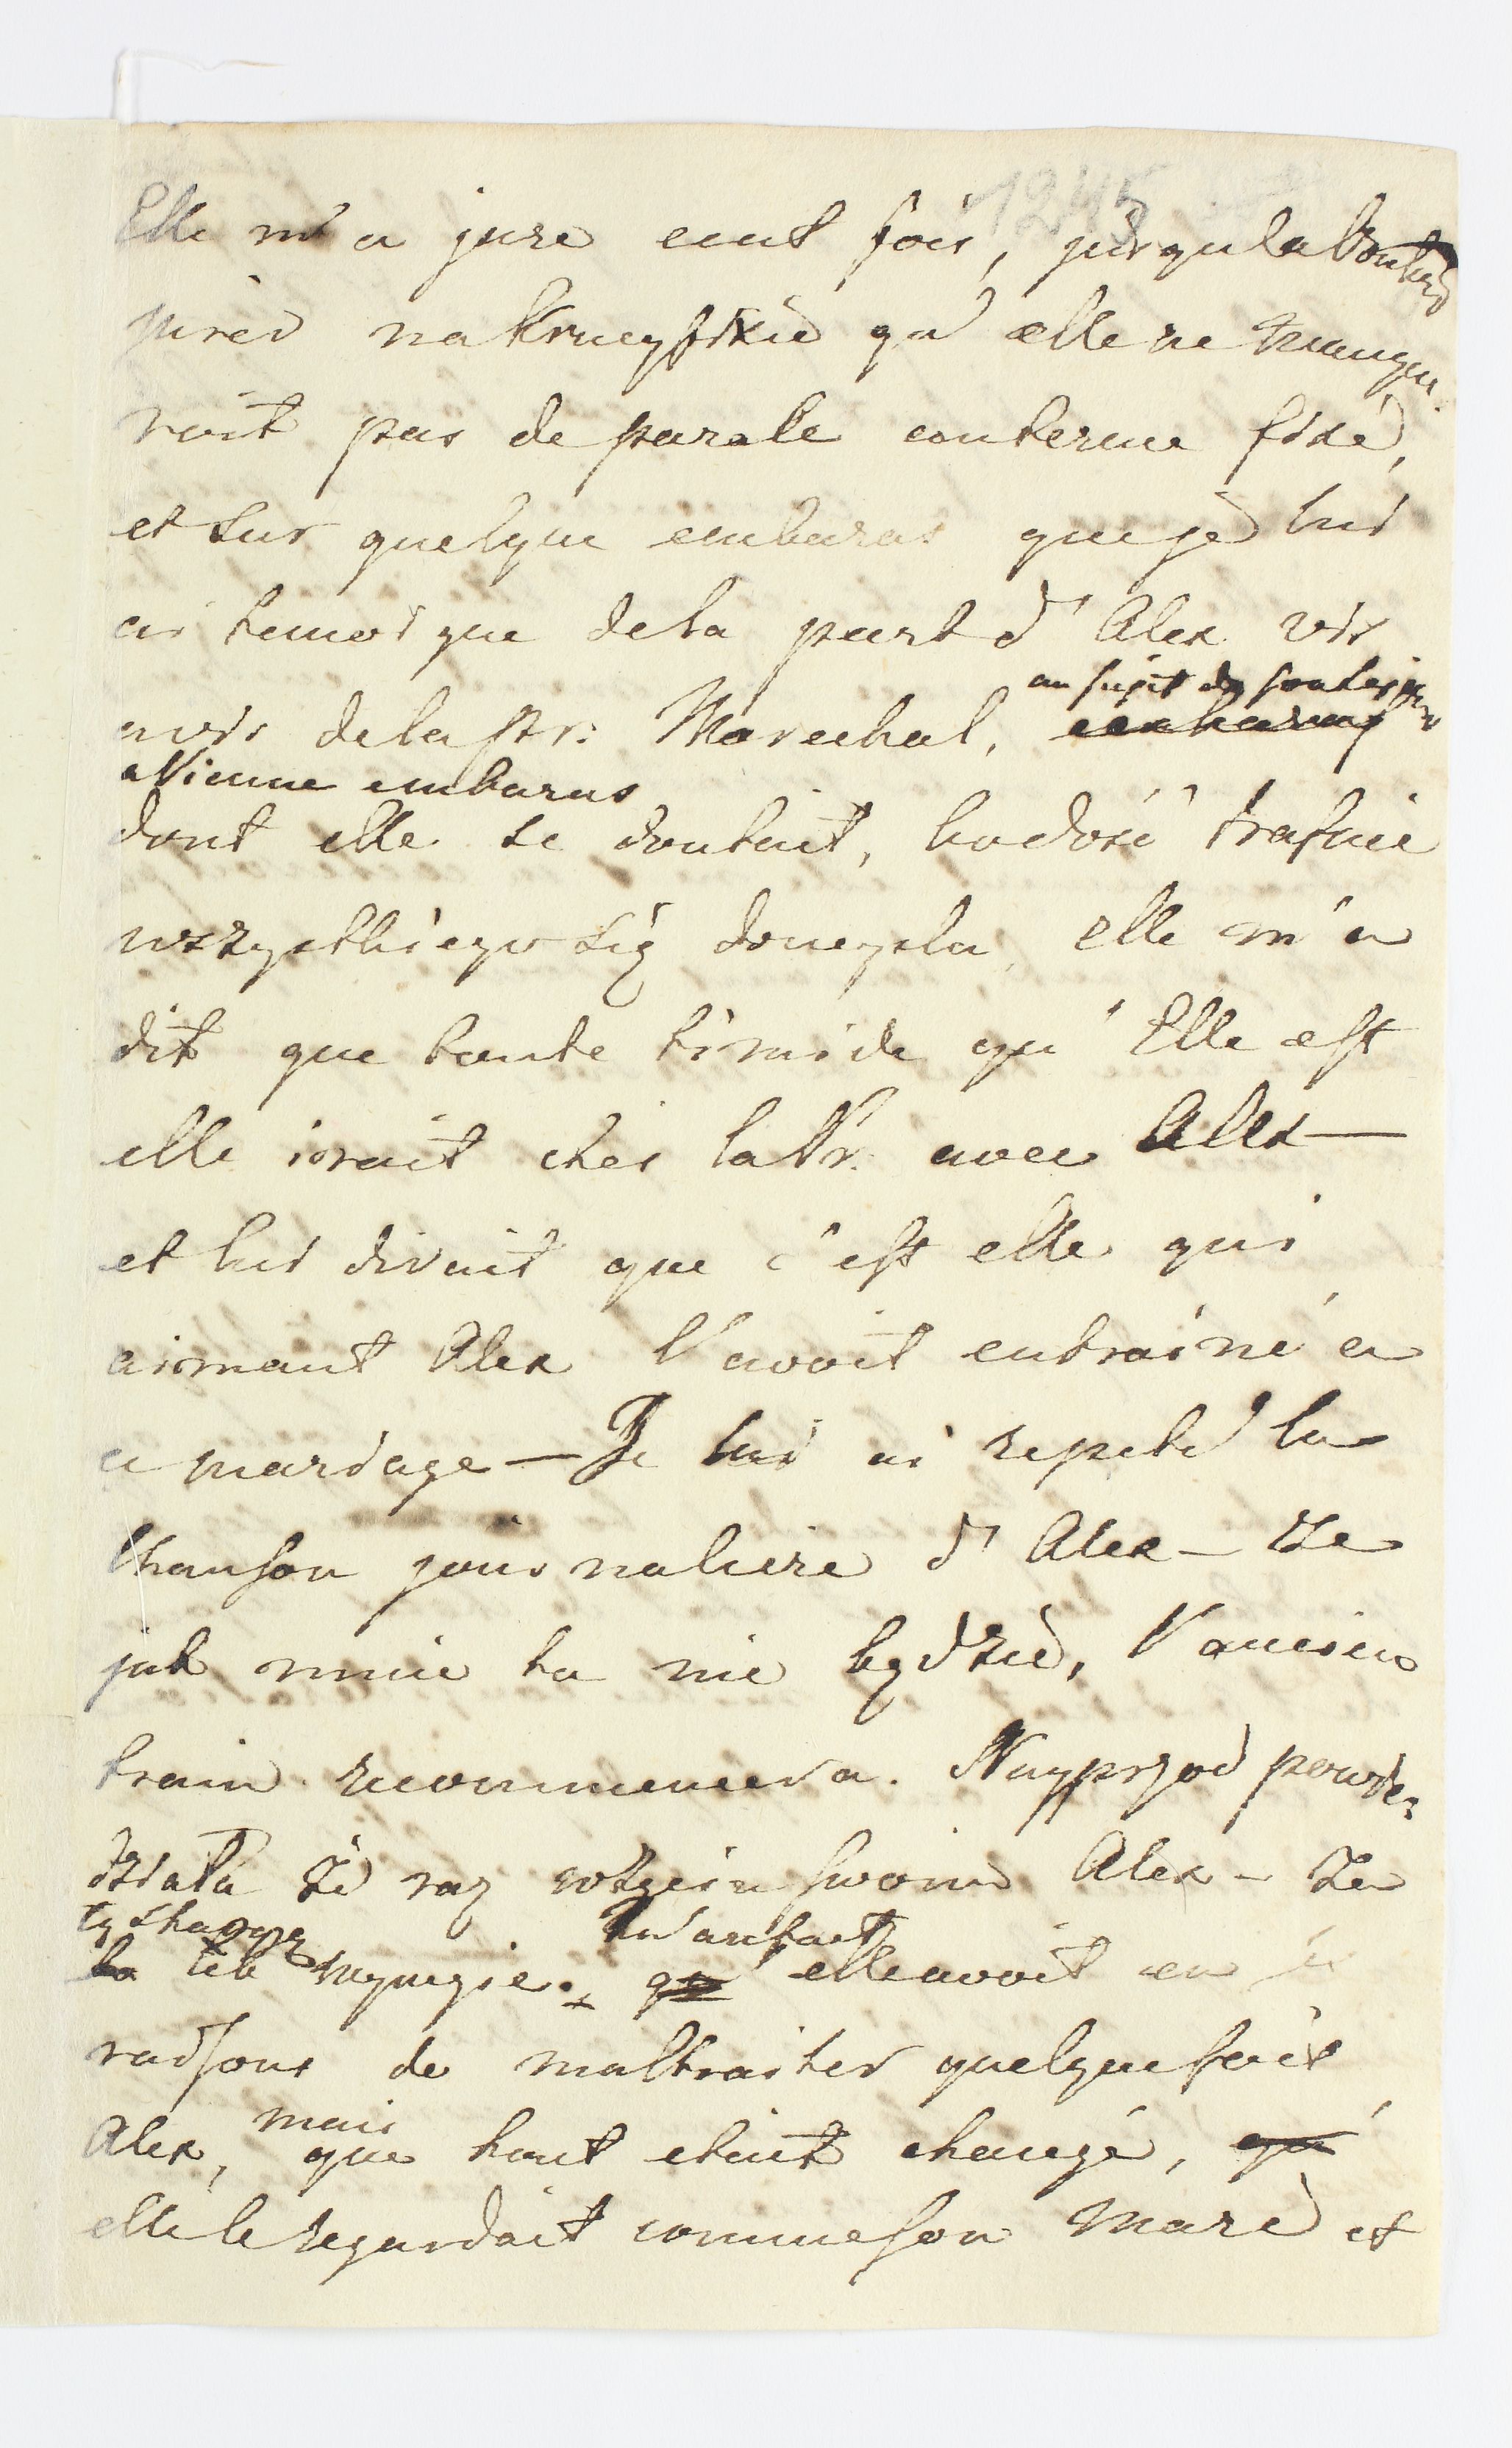 1245
Elle m'a juré cent fois, jusqu'a la Vouloir
jurer na Krucyfixie qu'elle ne manque-
roit pas de parole au terme fixé,
et sur quelque embaras que je lui
ai temoigne de la part d'Alex vis
a vis de la Pr: Marechal,
au sujet de son sejour
a Vienne embaras
dont elle se doutait, bo dość trafnie
wszystkiego się domysla, elle m'a
dit que toute timide qu'Elle est
elle irait chez la Pr: avec Alex—
et lui dirait que c'est elle qui
aimant Alex l'avoit entrainé a
ce mariage — Je lui ai repeté la
Chanson journaliere d'Alex — że
jak mnie tu nie będzie, l'ancien
train recommencera. Nayprzod powie-
działa że raz wzięła swoim Alex — że
le minie. qu'elle avoit eu
raisons de maltraiter quelque fois
Alex, mais que tout etait changé, qu'
elle le regardait comme son Mari et